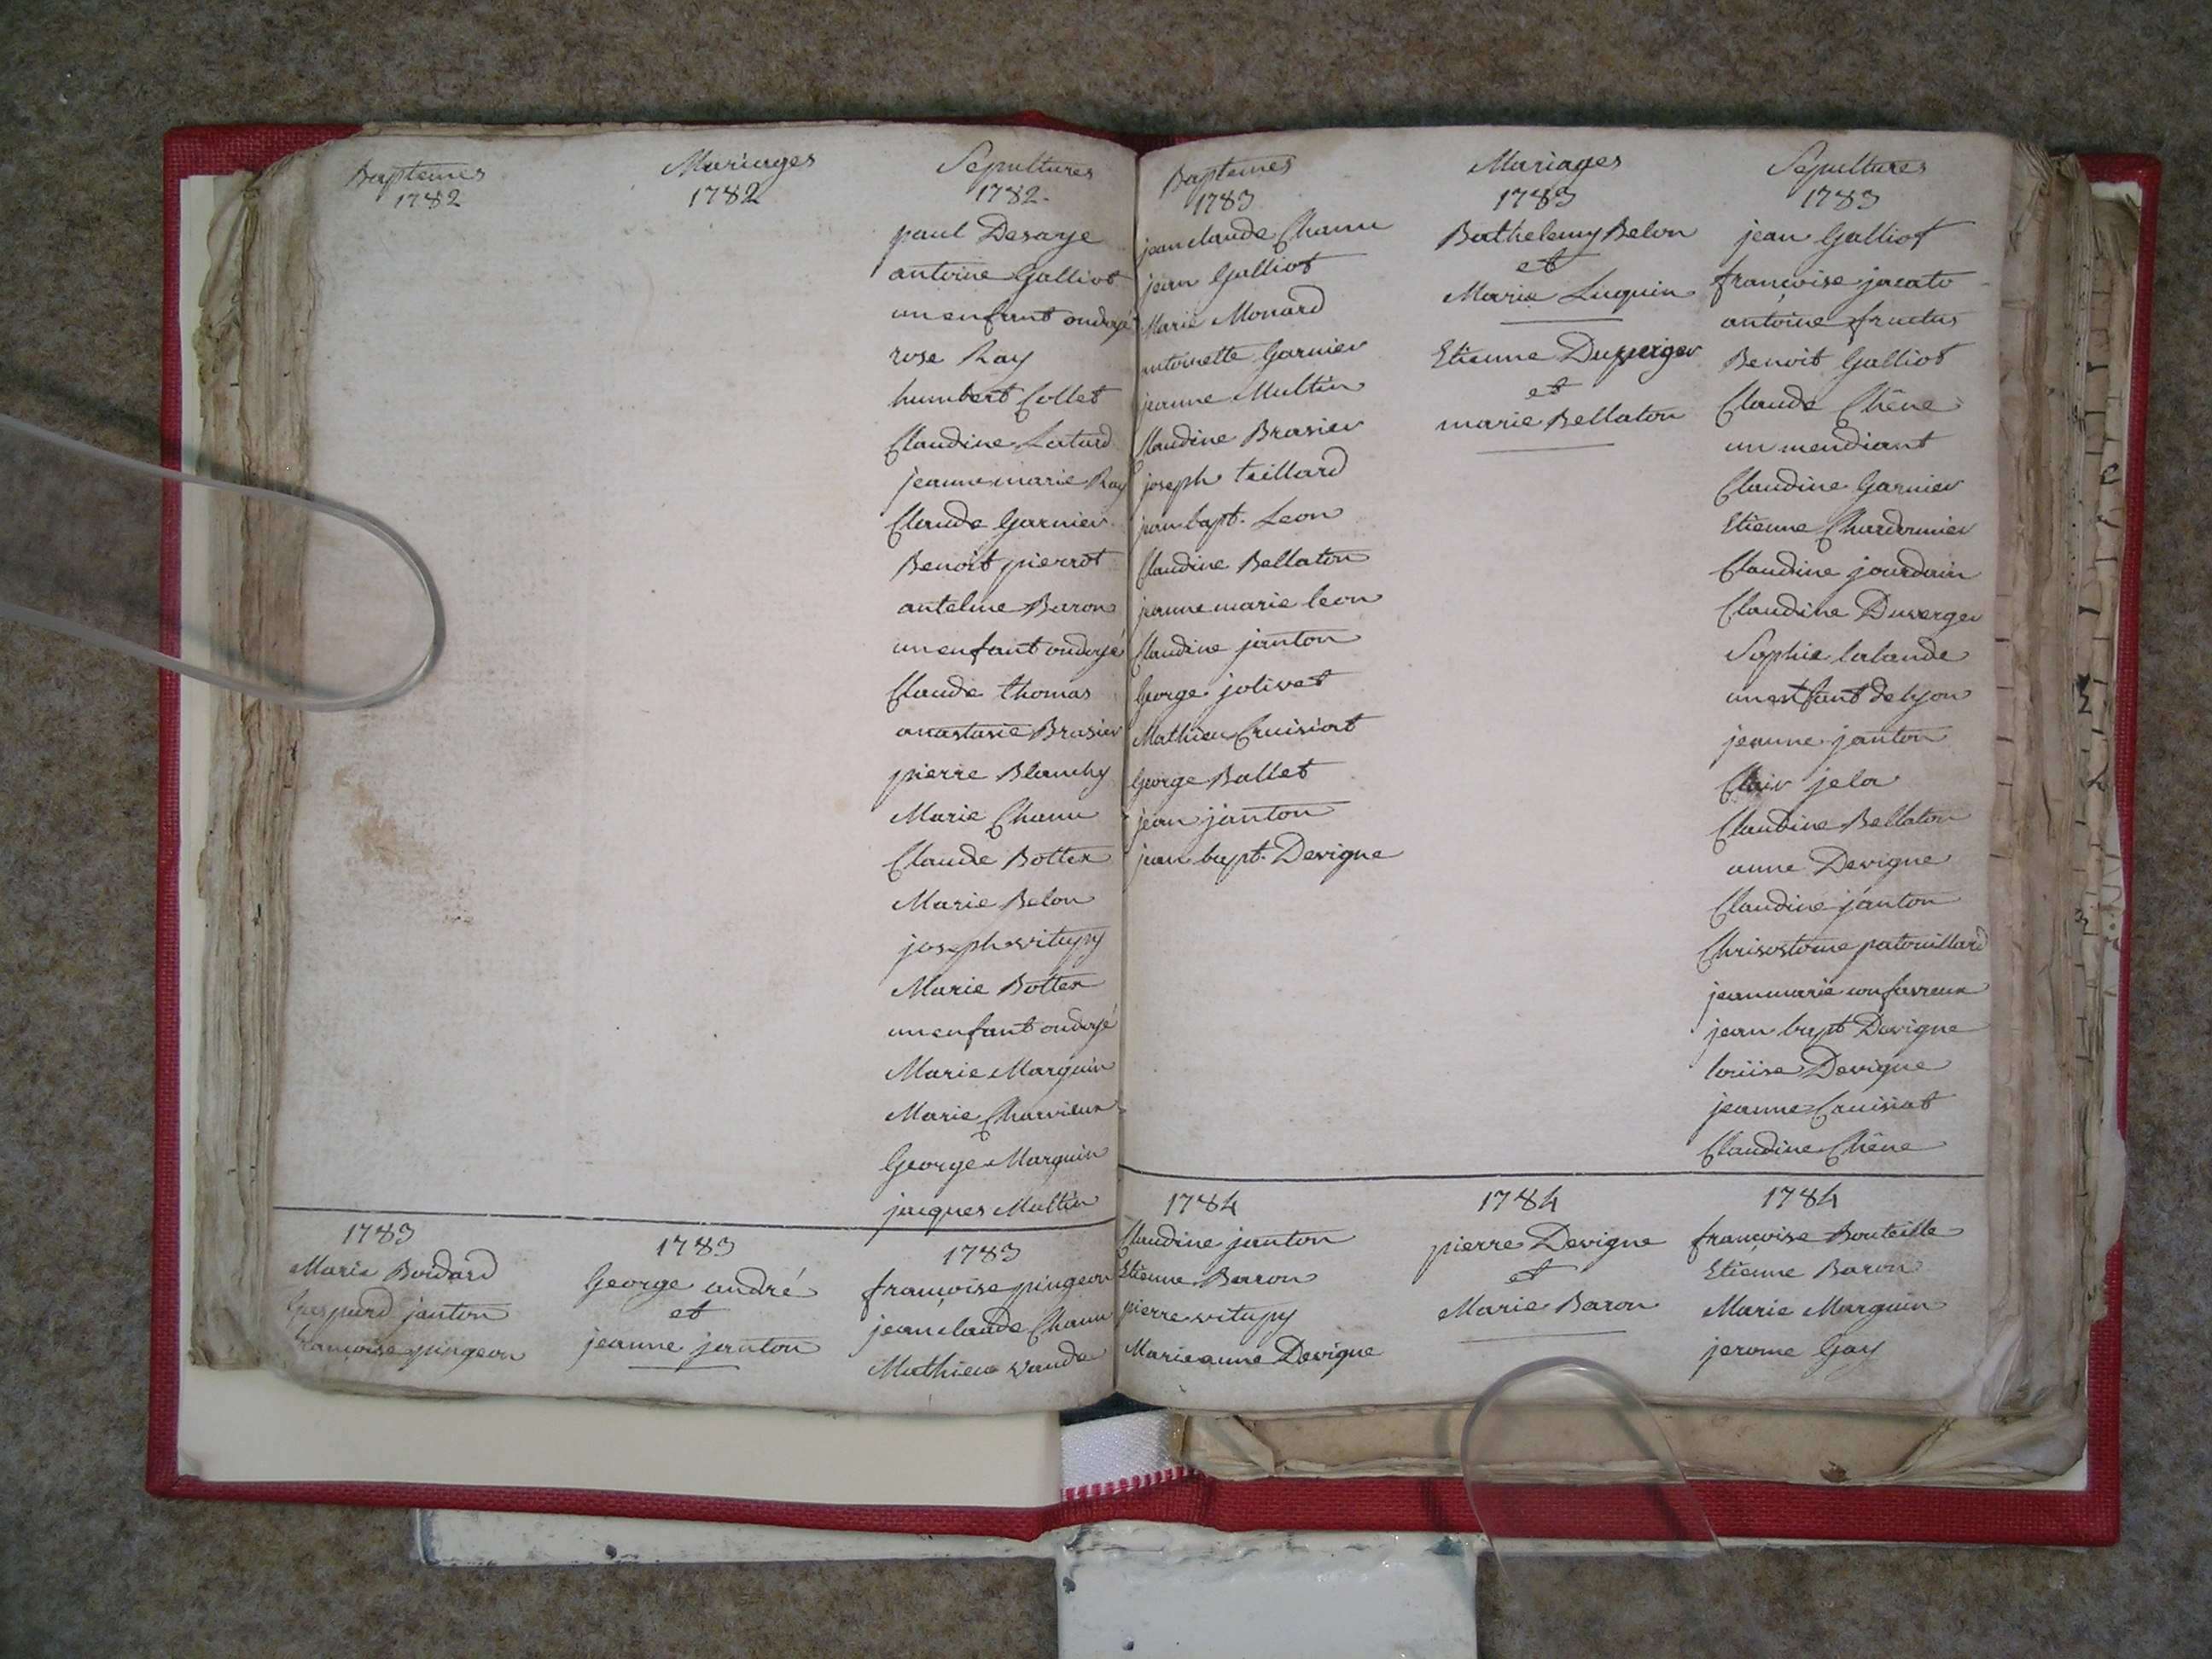 Baptemes
1782
Mariages
1782
Sepultures
1782.
paul Desaye
antoine Galliot
un enfant ondoyé
rose Ray
humbert Collet
Claudine Latard
jeanne marie Ray
Claude Garnier
Benoit pierrot
antelme Baron
un enfant ondoyé
Claude thomas
anastasie Brasier
pierre Blanchy
Marie Chanu
Claude Bottex
Marie Belon
joseph vitupy
Marie Bottex
un enfant ondoyé
Marie Marguin
Marie Charvieux
George Marguin
jacques Multin
1783
Marie Boidard
Gaspard janton
francoise pingeon
1783
George andré
et
jeanne janton
1783
francoise pingeon
jean claude Chanu
Mathieu vande
Baptemes
1783
jean claude Chanu
jean Galliot
Marie Monard
antoinette Garnier
jeanne Multin
Claudine Brasier
joseph teillard
jean bapt. Leon
Claudine Bellaton
jeanne marie leon
Claudine janton
George jolivet
Mathieu Cruisiat
George Ballet
jean janton
jean bapt. Devigne
Mariages
1783
Barthelemy Belon
et
Marie Luquin
Etienne
et
marie Bellaton
Sepultures
1783
jean Galliot
francoise jacato
antoine fructus
Benoit Galliot
Claude Chêne
un mendiant
Claudine Garnier
Etienne Chardonnier
Claudine jourdain
Claudine Duverger
Sophie lalande
un enfant de lyon
jeanne janton
Clair jela
Claudine Bellaton
anne Devigne
Claudine janton
Chrisostome patouillard
jean marie confavreux
jean bapt Devigne
louise Devigne
jeanne Cruisiat
Claudine Chêne
1784
Claudine janton
Etienne Baron
pierre vitupy
Marie anne Devigne
1784
pierre Devigne
et
Marie Baron
1784
francoise Bouteille
Etienne Baron
Marie Marguin
jerome Gay